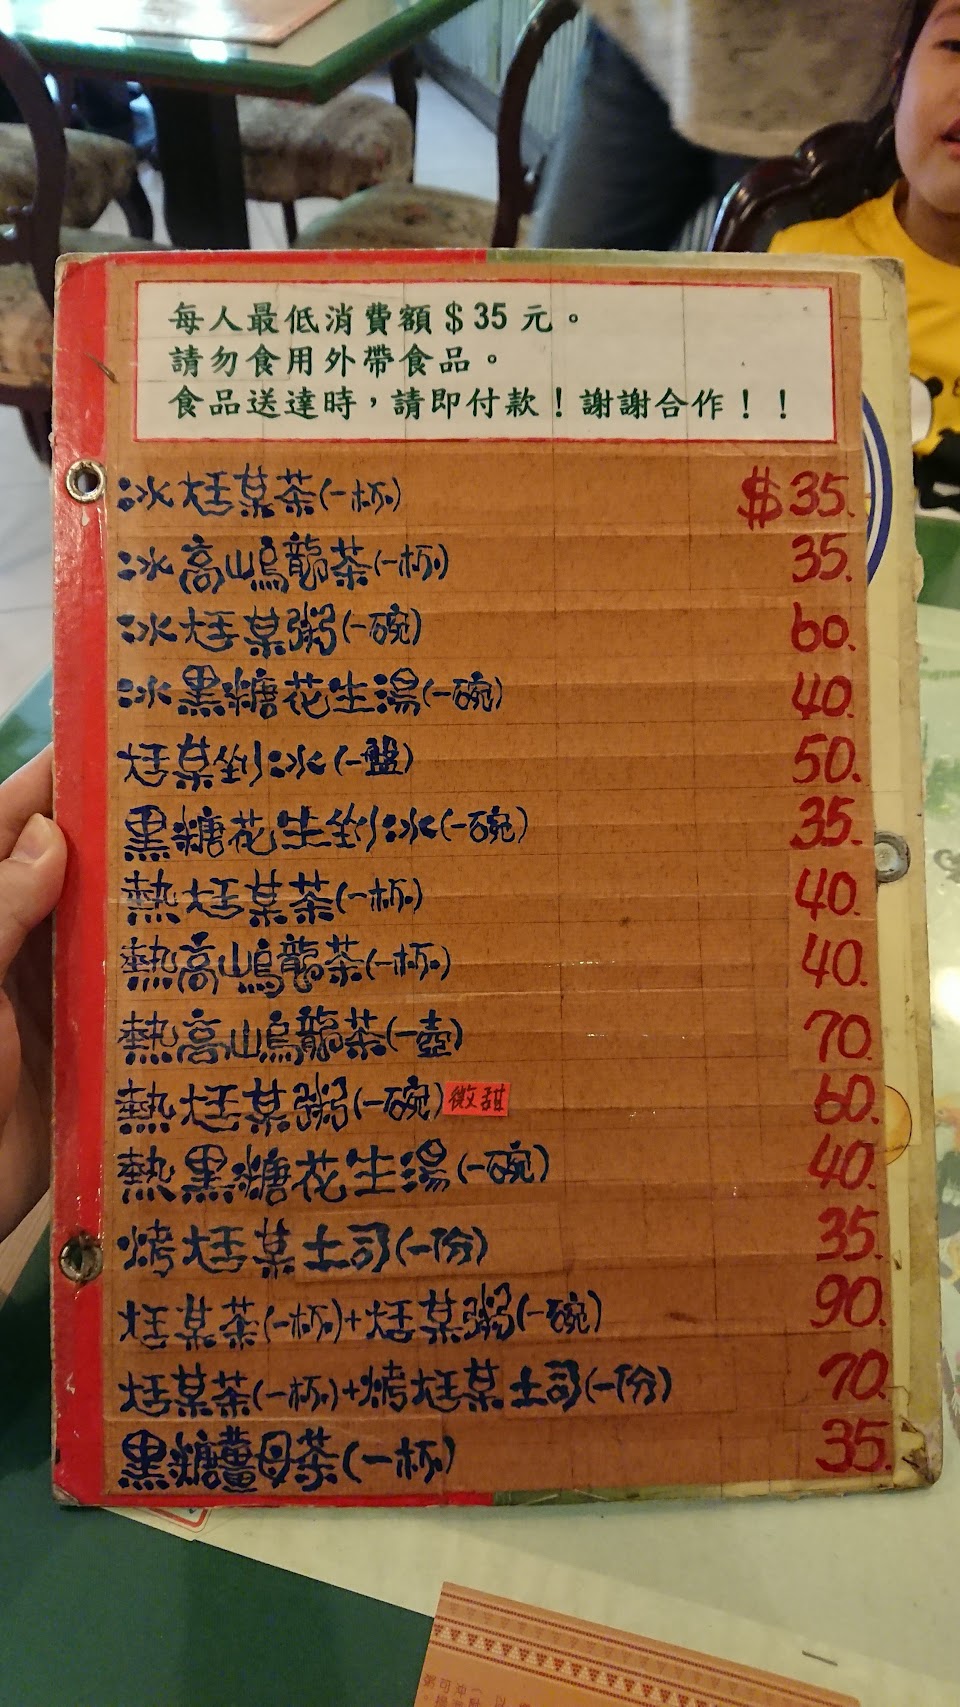 每人最低消費額＄35元。
請勿食用外帶食品。
食品送達時，請即付款！謝謝合作！！
冰尪某茶(一杯) $35.
冰高山烏龍茶(一杯) 35.
冰尪某粥(一碗) 60.
冰黑糖花生湯(一碗) 40.
尪某剉冰(一盤) 50.
黑糖花生剉冰(一碗) 35.
熱尪某茶(一杯) 40.
熱高山烏龍茶(一杯) 40.
熱高山烏龍茶(一壺) 70.
熱尪某粥(一碗)微甜 60.
熱黑糖花生湯(一碗) 40.
烤尪某土司(一份) 35.
尪某茶(一杯)+尪某粥(一碗) 90.
尪某茶(一杯)+烤尪某土司(一份) 70.
黑糖薑母茶(一杯) 35.